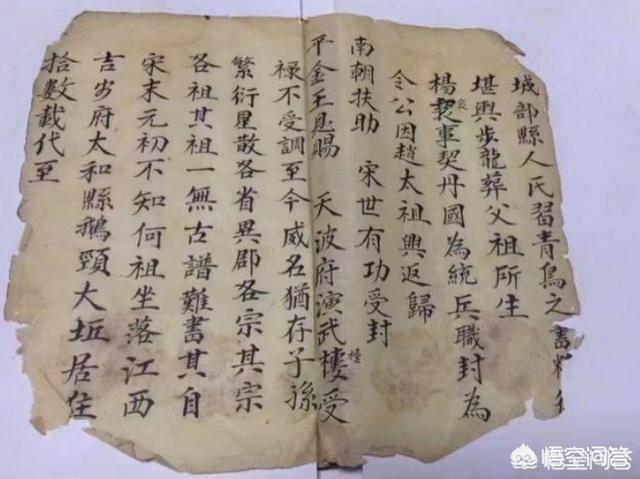 城部縣人民習青鳥之書
堪輿步龍葬父祖所生
楊事契丹國為統兵職封為
令公因趙太祖興返歸
南朝扶助 宋世有功受封
平金王恩賜 天波府演武樓受
祿不受調至今威名猶存子孫
繁衍星散各省異郡各宗其宗
各祖其祖一無古譜難書其自
宋末元初不知何祖坐落江西
吉安府太和縣鵝頸大坵居住
拾數載代至
悟空问答